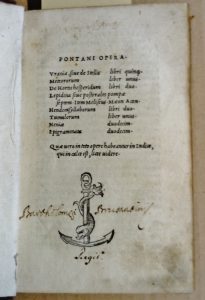 PONTANI OPERA.
Vrania, siue de Stellis libri quinq;
Meteororum liber unus.
De Hortis hesperidum libri duo.
Lepidina siue postorales pompæ
septem. Item Meliseus. Mæon. Acon.
Hendecasyllaborum libri duo.
Tumulorum liber unus.
Neniæ duodecim.
Epigrammata duodecim.
Quæ uero in toto opere habeantur in Indice,
qui in calce est, licet uidere.
Bartholomei